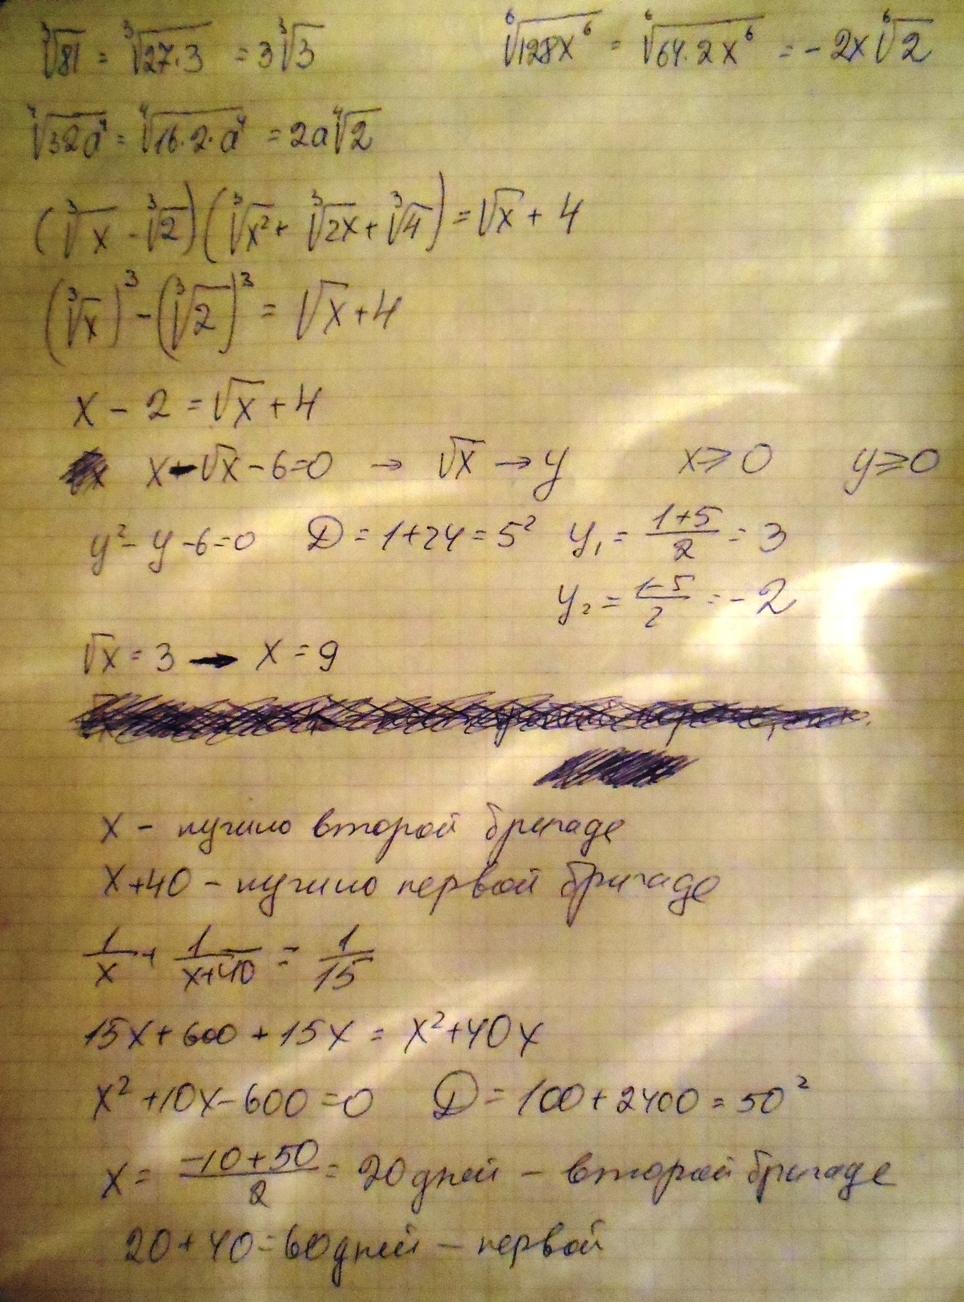 ∛81 = ∛27·3 = 3∛3    ⁶√128x⁶ = ⁶√64·2x⁶ = -2x ⁶√2
⁴√32a⁴ = ⁴√16·2·a⁴ = 2a ⁴√2
(∛x - ∛2)(∛x² + ∛2x + ∛4) = √x + 4
(∛x)³ - (∛2)³ = √x + 4
x - 2 = √x + 4
x - √x - 6 = 0 → √x → y    x ⩾ 0    y ⩾ 0
y² - y - 6 = 0    D = 1 + 24 = 5²    y₁ = (1+5)/2 = 3
y₂ = (1-5)/2 = -2
√x = 3 → x = 9
x - нужно второй бригаде
x+40 - нужно первой бригаде
1/x + 1/(x+40) = 1/15
15x + 600 + 15x = x² + 40x
x² + 10x - 600 = 0    D = 100 + 2400 = 50²
x = (-10+50)/2 = 20 дней - второй бригаде
20 + 40 = 60 дней - первой